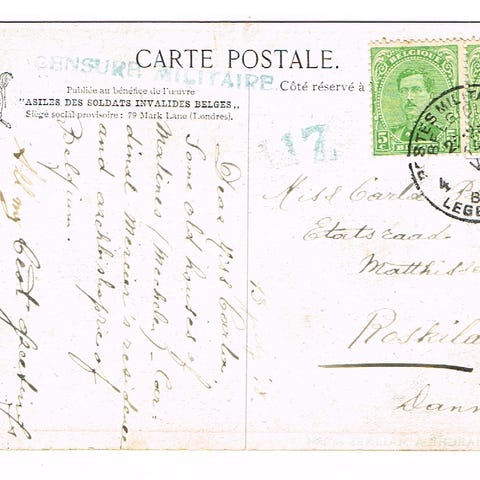 CARTE POSTALE.
CENSURE MILITAIRE
Publiée au bénéfice de l'œuvre
"ASILES DES SOLDATS INVALIDES BELGES,,
Siège social provisoire : 79 Mark Lane (Londres).
Côté réservé à
117
BELGIQUE
5
POSTES MILITAI
4
LEGE
Dear Miss Carla
Some old houses of
Malines (Mecheln) - Car-
dinal Mercier's residence
and archbishopric of
Belgium.
All my best greetings
Miss Carla
Etatsraad
Matthis
Roskil
Dan